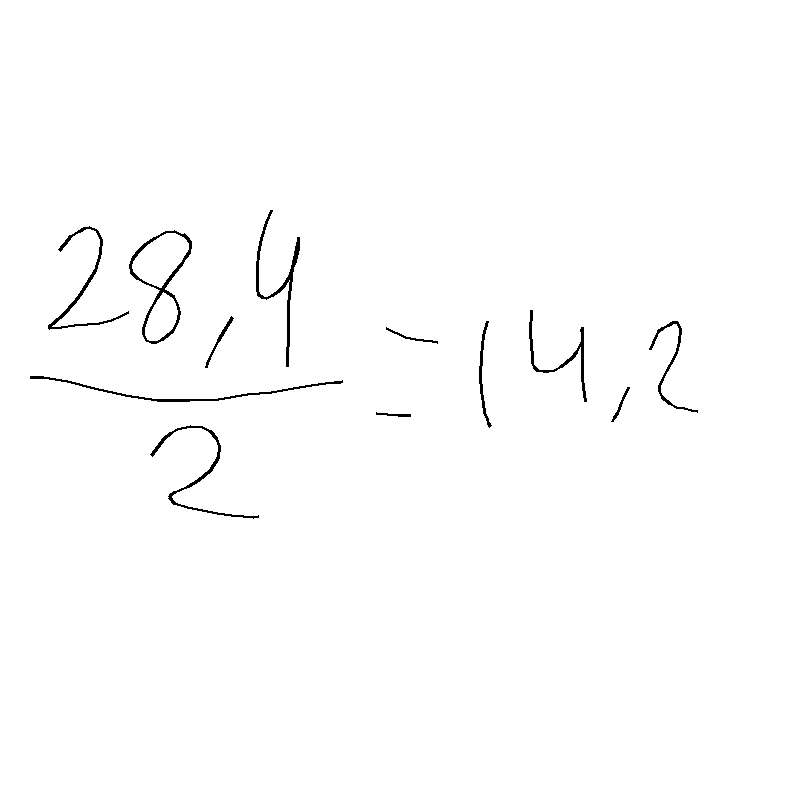 28,4
/2 = 14,2